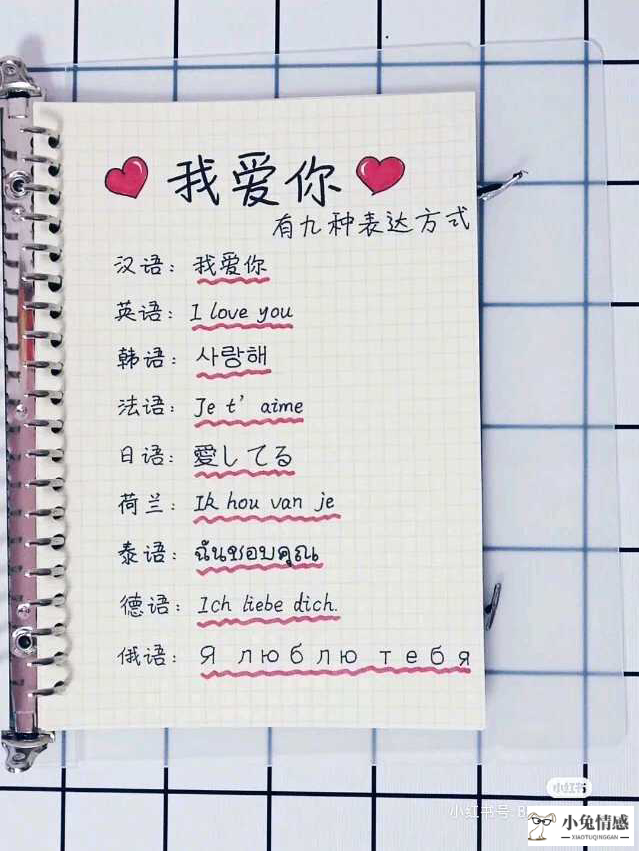 我爱你
有九种表达方式
汉语：我爱你
英语：I love you
韩语：사랑해
法语：Je t' aime
日语：愛してる
荷兰：Ik hou van je
泰语：ฉันชอบคุณ
德语：Ich liebe dich.
俄语：Я люблю тебя
小红书
小红书号
小兔情感
XIAOTUQINGGAN